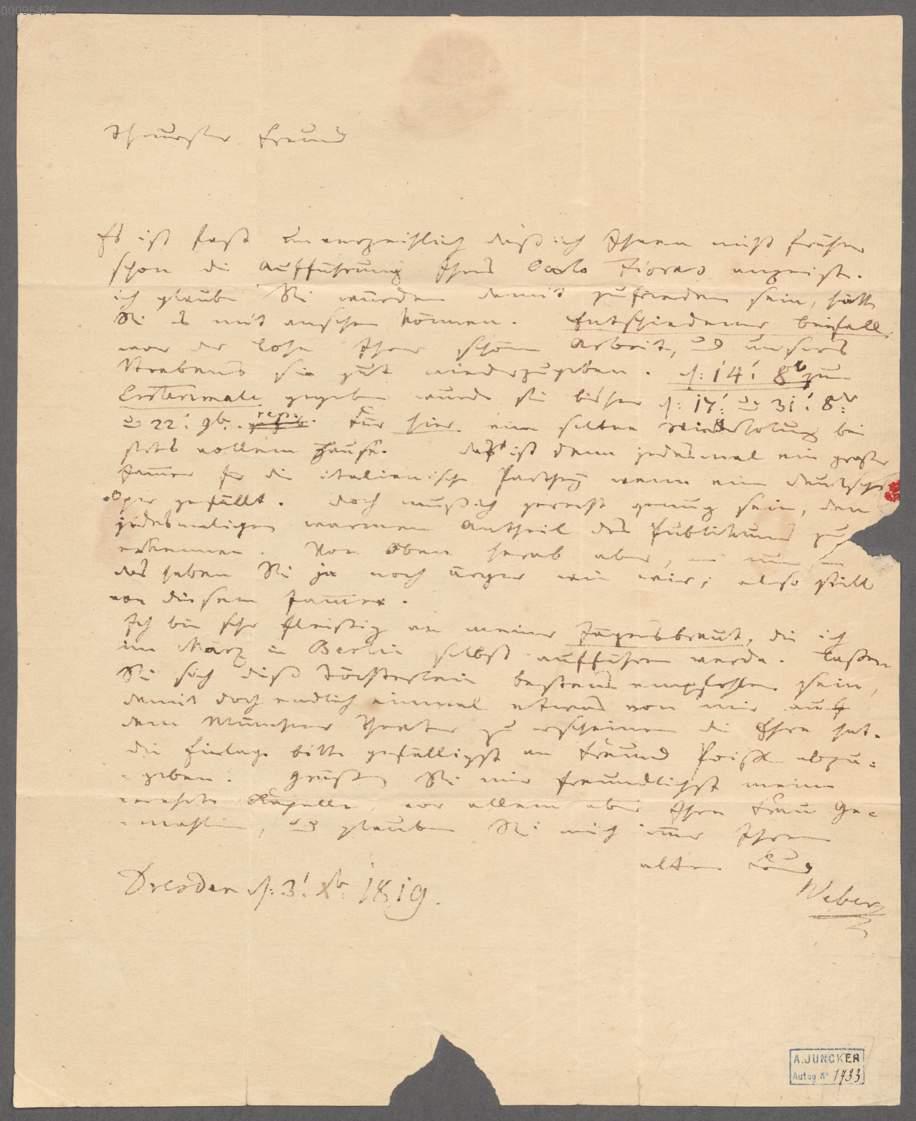 00095476
Theurester Freund
Es ist fast unverzeihlich daß ich Ihnen nicht früher
schon die Aufführung Ihres Carlo Fioras anzeigte.
ich glaube Sie würden damit zufrieden sein, hätten
Sie es mit ansehen können. Entschiedener beifall,
war der Lohn Ihrer schönen Arbeit, und unseres
Strebens sie gut wiederzugeben. d: 14t 8b zum
Erstenmale gegeben wurde sie bisher d: 17t und 31t 8br
und 22t 9br. Für hier eine seltne Wiederholung bei
stets vollem Hause. das ist denn jedesmal ein großer
Jammer für die italienische Parthey wenn eine deutsche
Oper gefällt. doch muß ich gerecht genug sein, den
jedesmaligen warmen Antheil des Publikums zu
erkennen. Von Oben herab aber,
das haben Sie ja noch ärger wie wir; also still
von diesem Jammer.
Ich bin sehr fleißig an meiner Jägersbraut, die ich
im März in Berlin selbst aufführen werde. Laßen
Sie sich dieß Töchterlein bestens empfohlen sein,
damit doch endlich einmal etwas von mir auf
dem Münchner Theater zu erscheinen die Ehre hat.
die Einlage bitte gefälligst an Freund Poißl abzu=
=geben. Grüßen Sie mir freundlichst meine
verehrte Kapelle, vor allem aber Ihre Frau Ge=
=mahlin, und glauben Sie mich immer Ihren
alten Freund
Weber
Dresden d: 3t Xbr 1819.
A. JUNCKER
Autog. No 1733